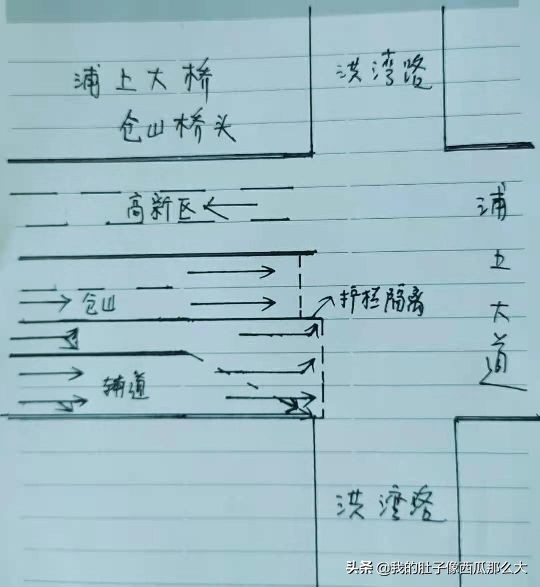 浦上大桥
洪湾路
仓山桥头
高新区
浦上大道
仓山
护栏隔离
辅道
洪湾路
头条 @我的肚子像西瓜那么大